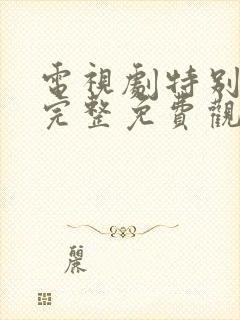 電視劇特別
完整免費觀
麗